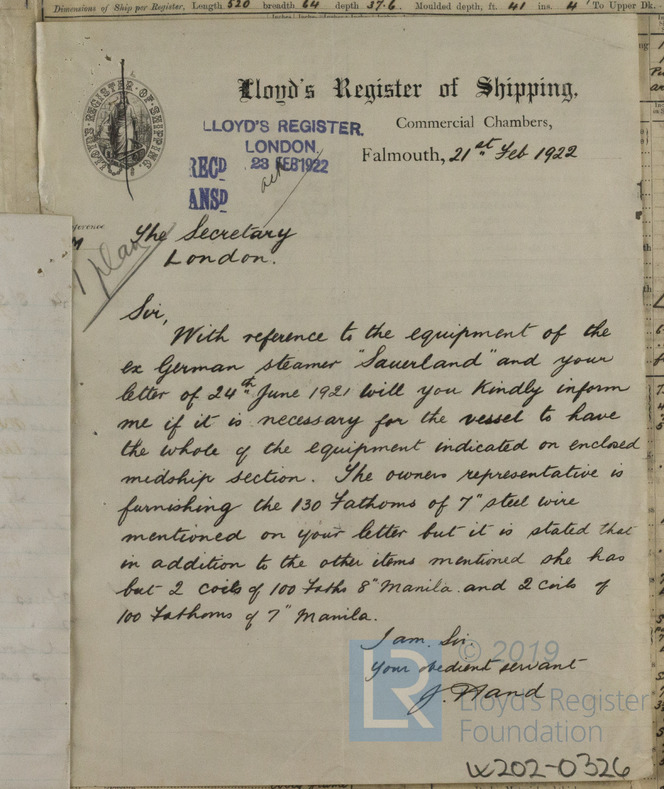 Dimensions of Ship per Register, Length 520 breadth 64 depth 37.6. Moulded depth, ft. 41 ins. 4 To Upper Dk.
LLOYD'S REGISTER OF SHIPPING
Lloyd's Register of Shipping,
Commercial Chambers,
Falmouth, 21st Feb 1922
LLOYD'S REGISTER.
LONDON.
23 FEB 1922
RECD
ANSD
1 plan
The Secretary
London.
Sir,
With reference to the equipment of the
ex German steamer "Sauerland" and your
letter of 24th June 1921 will you kindly inform
me if it is necessary for the vessel to have
the whole of the equipment indicated on enclosed
midship section. The owners representative is
furnishing the 130 Fathoms of 7" steel wire
mentioned on your letter but it is stated that
in addition to the other items mentioned she has
but 2 coils of 100 Faths 8" Manila and 2 coils of
100 Fathoms of 7" Manila.
I am. Sir.
Your obedient servant
© 2019
LR
Lloyd's Register
Foundation
W202-0326